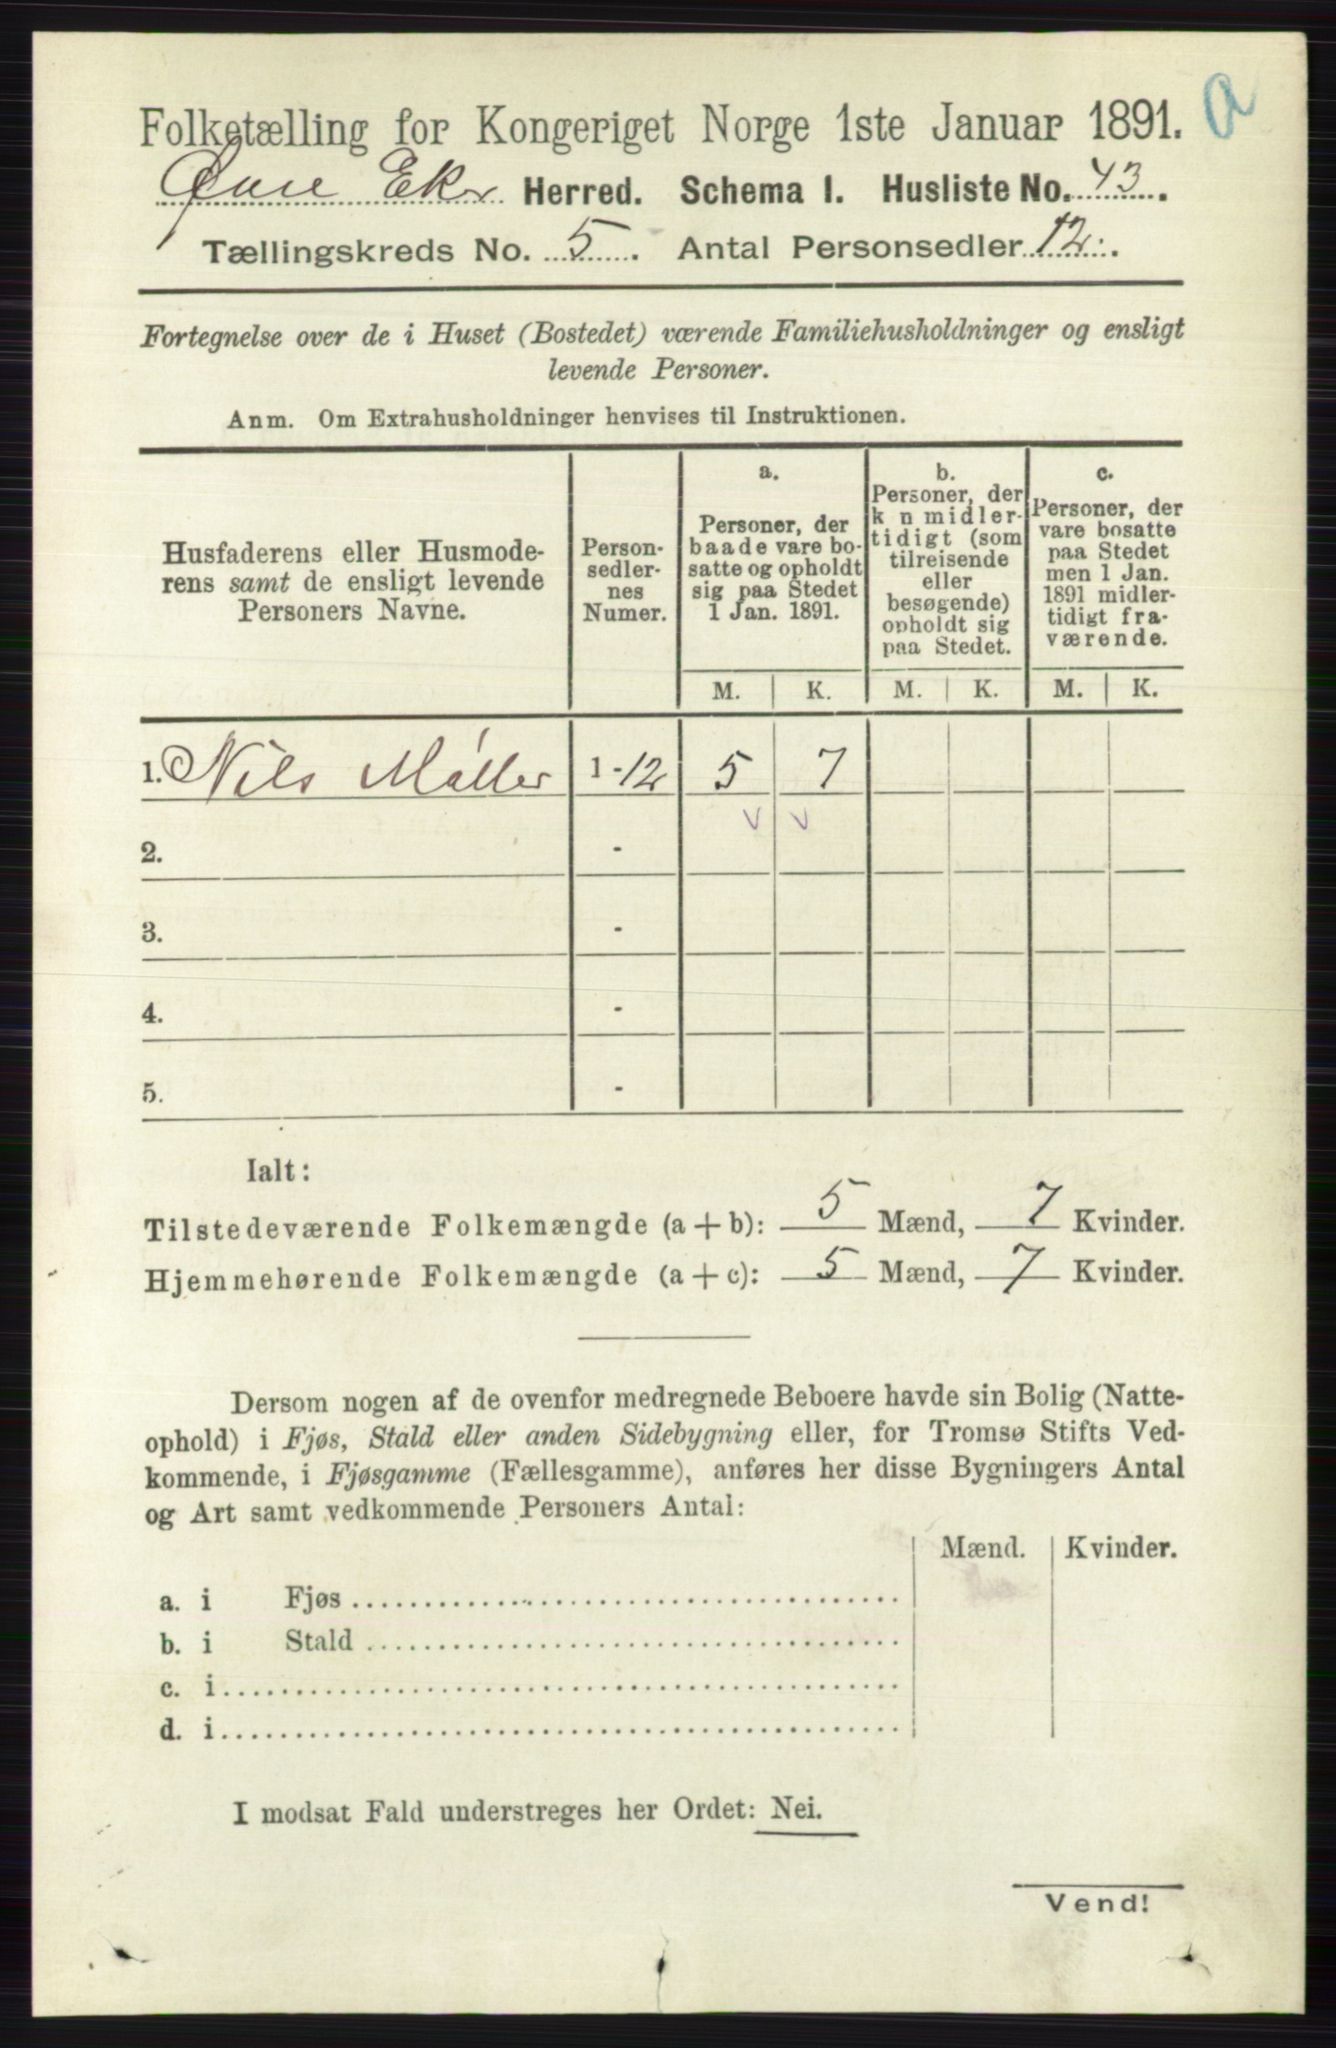 a
Folketælling for Kongeriget Norge 1ste Januar 1891.
Øvre Eker Herred. Schema 1. Husliste No. 43.
Tællingskreds No. 5. Antal Personsedler 12.
Fortegnelse over de i Huset (Bostedet) værende Familiehusholdninger og ensligt
levende Personer.
Anm. Om Extrahusholdninger henvises til Instruktionen.
Husfaderens eller Husmode-
rens samt de ensligt levende
Personers Navne.
Person-
sedler-
nes
Numer.
a.
Personer, der
baade vare bo-
satte og opholdt
sig paa Stedet
1 Jan. 1891.
b.
Personer, der
k n midler-
tidigt (som
tilreisende
eller
besøgende)
opholdt sig
paa Stedet.
c.
Personer, der
vare bosatte
paa Stedet
men 1 Jan.
1891 midler-
tidigt fra-
værende.
M. K. M. K. M. K.
1. Nils Møller 1-12 5 7
v v
2. -
3. -
4. -
5. -
Ialt:
Tilstedeværende Folkemængde (a + b): 5 Mænd, 7 Kvinder.
Hjemmehørende Folkemængde (a + c): 5 Mænd, 7 Kvinder.
Dersom nogen af de ovenfor medregnede Beboere havde sin Bolig (Natte-
ophold) i Fjøs, Stald eller anden Sidebygning eller, for Tromsø Stifts Ved-
kommende, i Fjøsgamme (Fællesgamme), anføres her disse Bygningers Antal
og Art samt vedkommende Personers Antal:
Mænd. Kvinder.
a. i Fjøs
b. i Stald
c. i
d. i
I modsat Fald understreges her Ordet: Nei.
Vend!